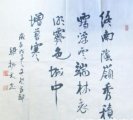 终南陰嶺秀積
雪浮雲端林表
明霽色城中
增暮寒